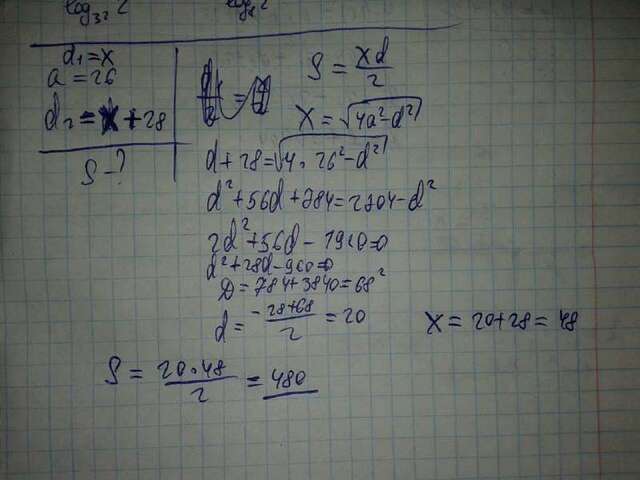 log₃₂ 2
log₈ 2
d₁ = x
a = 26
d₂ = x + 28
S - ?
S = xd/2
x = √(4a² - d²)
d + 28 = √(4 · 26² - d²)
d² + 56d + 784 = 2704 - d²
2d² + 56d - 1920 = 0
d² + 28d - 960 = 0
D = 784 + 3840 = 68²
d = (-28 + 68)/2 = 20
x = 20 + 28 = 48
S = 20 · 48/2 = 480